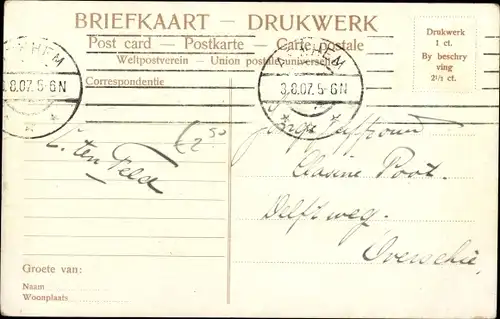 BRIEFKAART — DRUKWERK
Post card — Postkarte — Carte postale
Weltpostverein — Union postale universelle
Drukwerk
1 ct.
By beschry
ving
2½ ct.
RNHEM
3.8.07. 5-6N
NHEM
3.8.07. 5-6N
Correspondentie
€2 50
C. ten Velde
Clasine Poot.
Delftweg.
Overschie.
Groete van:
Naam
Woonplaats